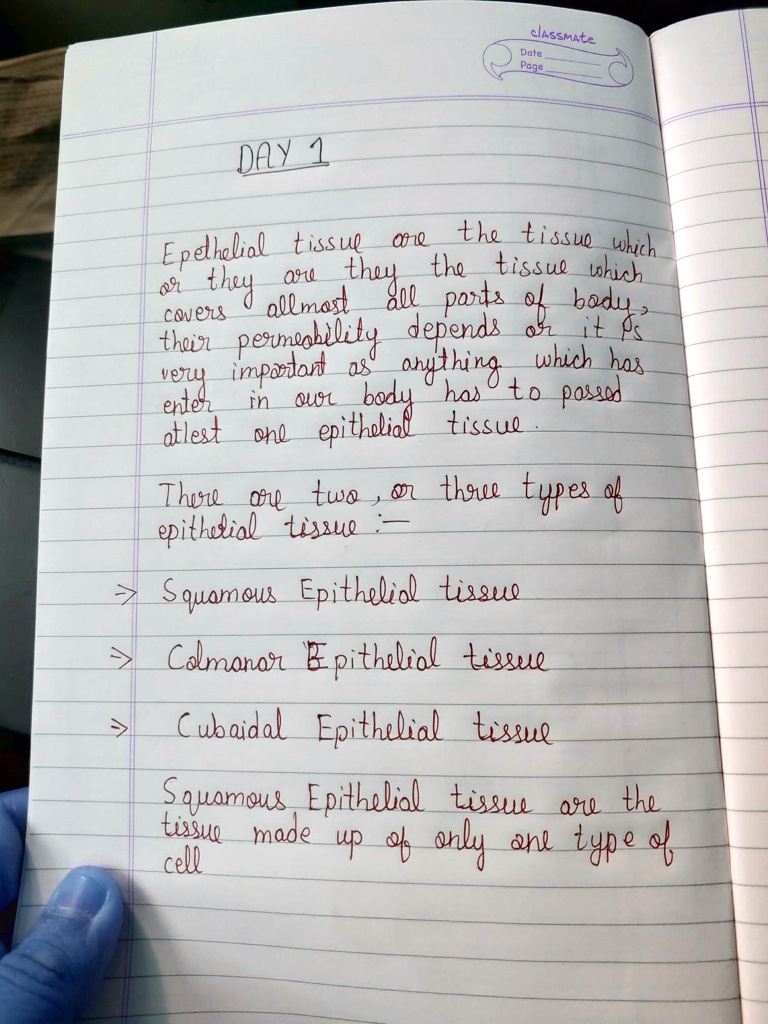 classmate
Date
Page
DAY 1
Epethelial tissue are the tissue which
or they are they the tissue which
covers allmost all parts of body,
their permeability depends or it is
very important as anything which has
enter in our body has to passed
atlest one epithelial tissue.
There are two, or three types of
epithelial tissue :-
⇒ Squamous Epithelial tissue
⇒ Colmanar Epithelial tissue
⇒ Cubaidal Epithelial tissue
Squamous Epithelial tissue are the
tissue made up of only one type of
cell